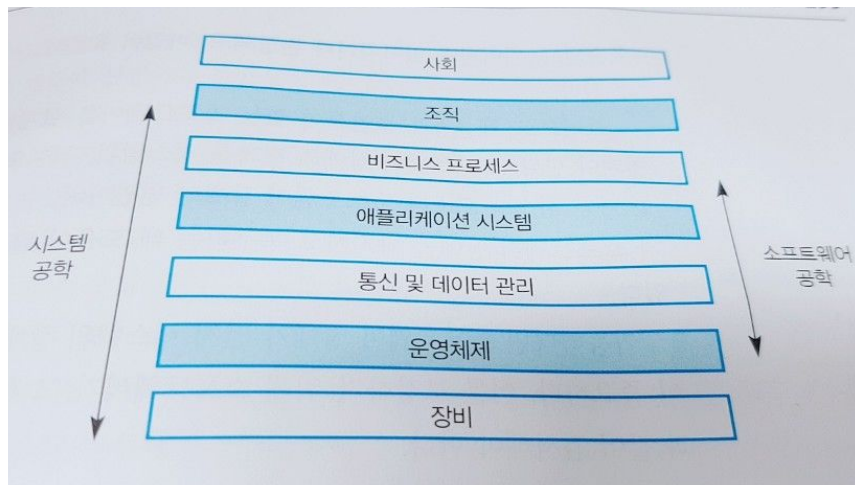 사회
조직
비즈니스 프로세스
애플리케이션 시스템
통신 및 데이터 관리
운영체제
장비
시스템
공학
소프트웨어
공학